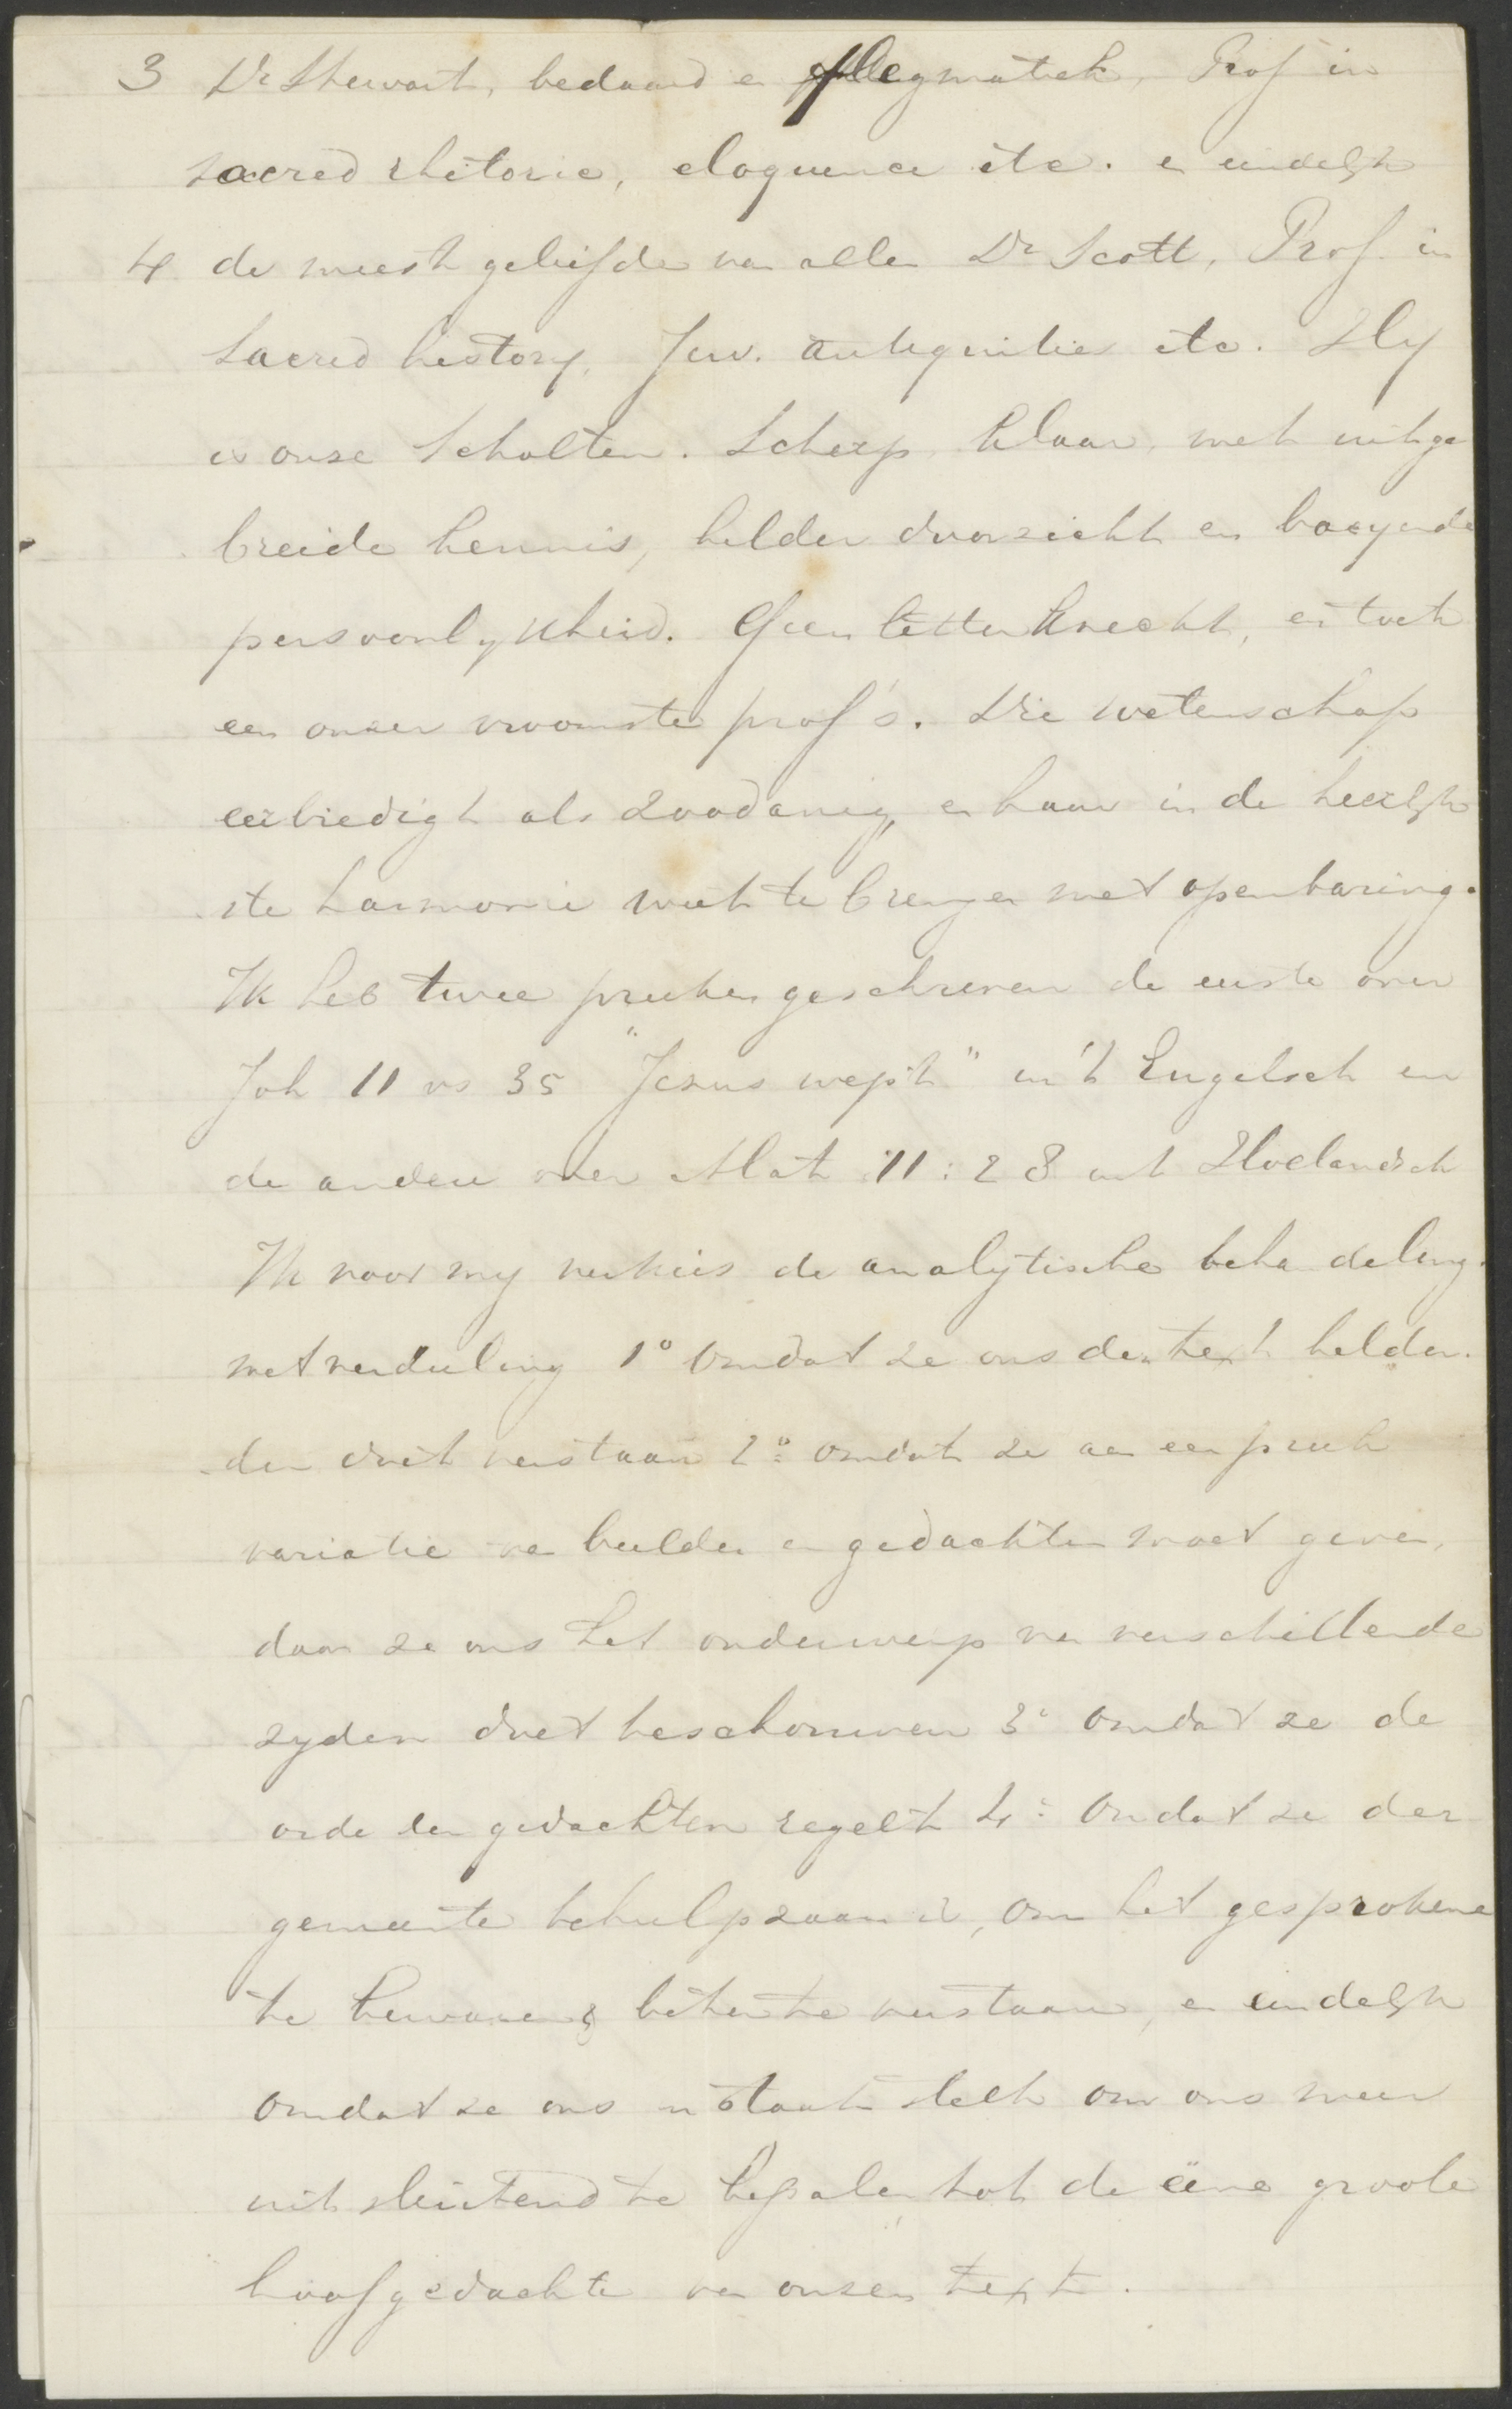 3 Dr Stewart, bedaard en flegmatiek, Prof in
sacred rhetoric, eloquence etc. en eindelijk
4 de meest geliefde van allen Dr Scott, Prof. in
Sacred history, Jew. antiquities etc. Hy
is onze Scholten. Scherp, klaar, met uitge
breide kennis, helder doorzicht en boeyende
persoonlykheid. Geen letterknecht, en toch
een onzer vroomste prof's. Die wetenschap
eerbiedigt als zoodanig, en haar in de heerlijk
ste harmonie weet te brengen met openbaring.
Ik heb twee preeken geschreven de eerste over
Joh 11 vs 35 "Jesus wept" in 't Engelsch en
de andere over Mat 11:28 in't Hollandsch
Ik voor my verkies de analytische behandeling
met verdeeling 1o omdat ze ons den text helder.
der doet verstaan 2o omdat ze aan een preek
variatie van beelden en gedachten moet geven,
daar ze ons het onderwerp van verschillende
zyden doet beschouwen 3o omdat ze de
orde der gedachten regelt 4o Omdat ze der
gemeente behulpzaam is, om het gesprokene
te bewaren & beter te verstaan, en eindelijk
omdat ze ons in staat stelt om ons meer
uitsluitend te bepalen tot de ééne groote
hoofgedachte van onzen text.